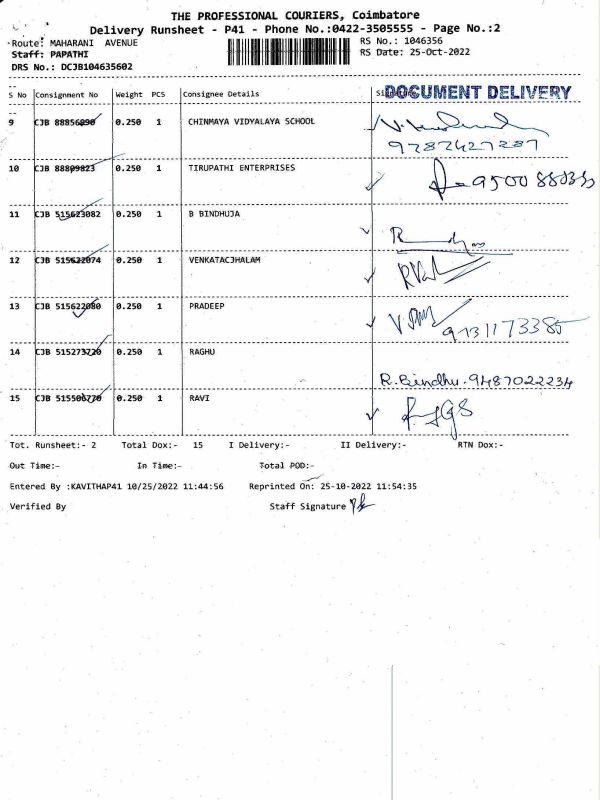 THE PROFESSIONAL COURIERS, Coimbatore
Delivery Runsheet - P41 - Phone No.:0422-3505555 - Page No.:2
Route: MAHARANI AVENUE
RS No.: 1046356
Staff: PAPATHI
RS Date: 25-Oct-2022
DRS No.: DCJB104635602
S No Consignment No Weight PCS Consignee Details Signature
DOCUMENT DELIVERY
9 CJB 88856890 0.250 1 CHINMAYA VIDYALAYA SCHOOL
9787427287
10 CJB 88809823 0.250 1 TIRUPATHI ENTERPRISES
11 CJB 515623082 0.250 1 B BINDHUJA
12 CJB 515622074 0.250 1 VENKATACJHALAM
13 CJB 515622080 0.250 1 PRADEEP
9731173385
14 CJB 515273720 0.250 1 RAGHU
R. Bindhu. 9487022234
15 CJB 515506770 0.250 1 RAVI
Tot. Runsheet:- 2 Total Dox:- 15 I Delivery:- II Delivery:- RTN Dox:-
Out Time:- In Time:- Total POD:-
Entered By :KAVITHAP41 10/25/2022 11:44:56 Reprinted On: 25-10-2022 11:54:35
Verified By Staff Signature